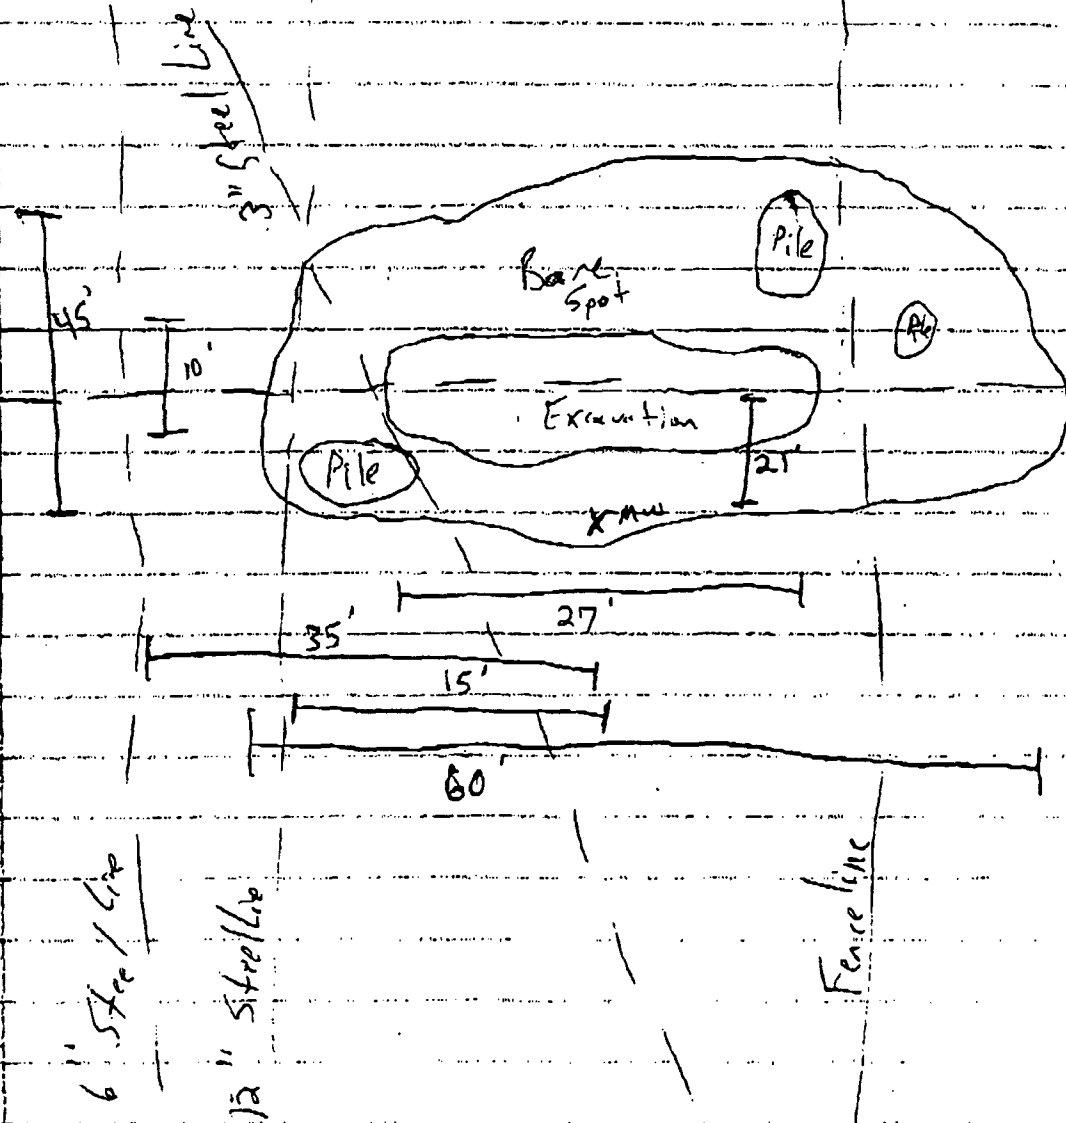 3" Steel Line
45'
10'
Pile
Bare
Spot
Pile
Excavation
Pile
X MW
27'
35'
15'
60'
6" Steel Line
12" Steel Line
Fence line